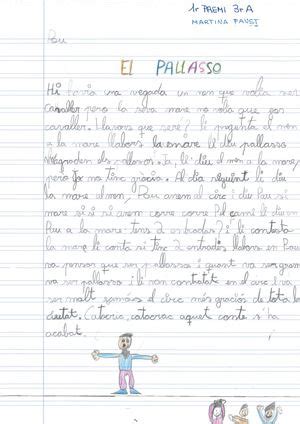 1r PREMI 3r A
MARTINA FAUST
Pau
El PALLASSO
Hi havia una vegada un nen que volia ser
cavaller pero la seva mare no volia que fos
cavaller. Llavors que seré? li pregunta el nen
a la mare llabors la mare li diu pallasso
m'agraden els pallassos. Ja, li diu el nen a la mare,
pero jo no tinc gracia. Al dia següent li diu
la mare al nen, Pau anem al circ i diu Pau si
mare si si si anem corre corre Pel camí li diu en
Pau a la mare tens 2 entrades? i li contesta
la mare li conta si tinc 2 entrades, llabors en Pau
va pensar que ser pallasso i quant va ser gran
va ser pallasso i li van contratat en el circ i va
ser molt famós el circ més graciós de tota la
ciutat. Catacric, catacrac aquet conte s'ha
acabat.